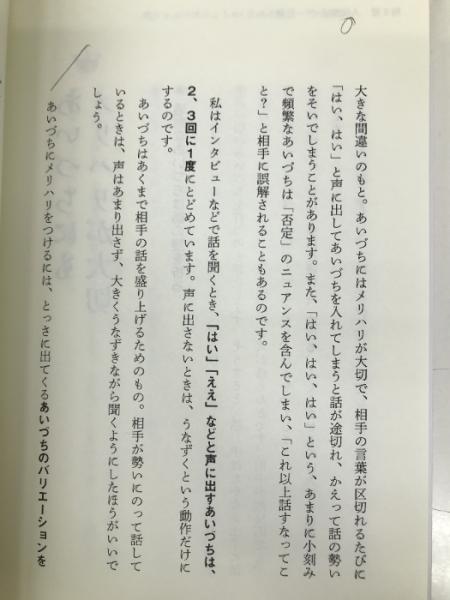 大きな間違いのもと。あいづちにはメリハリが大切で、相手の言葉が区切れるたびに
「はい、はい」と声に出してあいづちを入れてしまうと話が途切れ、かえって話の勢い
をそいでしまうことがあります。また、「はい、はい、はい」という、あまりに小刻み
で頻繁なあいづちは「否定」のニュアンスを含んでしまい、「これ以上話すなってこ
と？」と相手に誤解されることもあるのです。
私はインタビューなどで話を聞くとき、「はい」「ええ」などと声に出すあいづちは、
2、3回に1度にとどめています。声に出さないときは、うなずくという動作だけに
するのです。
あいづちはあくまで相手の話を盛り上げるためのもの。相手が勢いにのって話して
いるときは、声はあまり出さず、大きくうなずきながら聞くようにしたほうがいいで
しょう。
あいづちにメリハリをつけるには、とっさに出てくるあいづちのバリエーションを